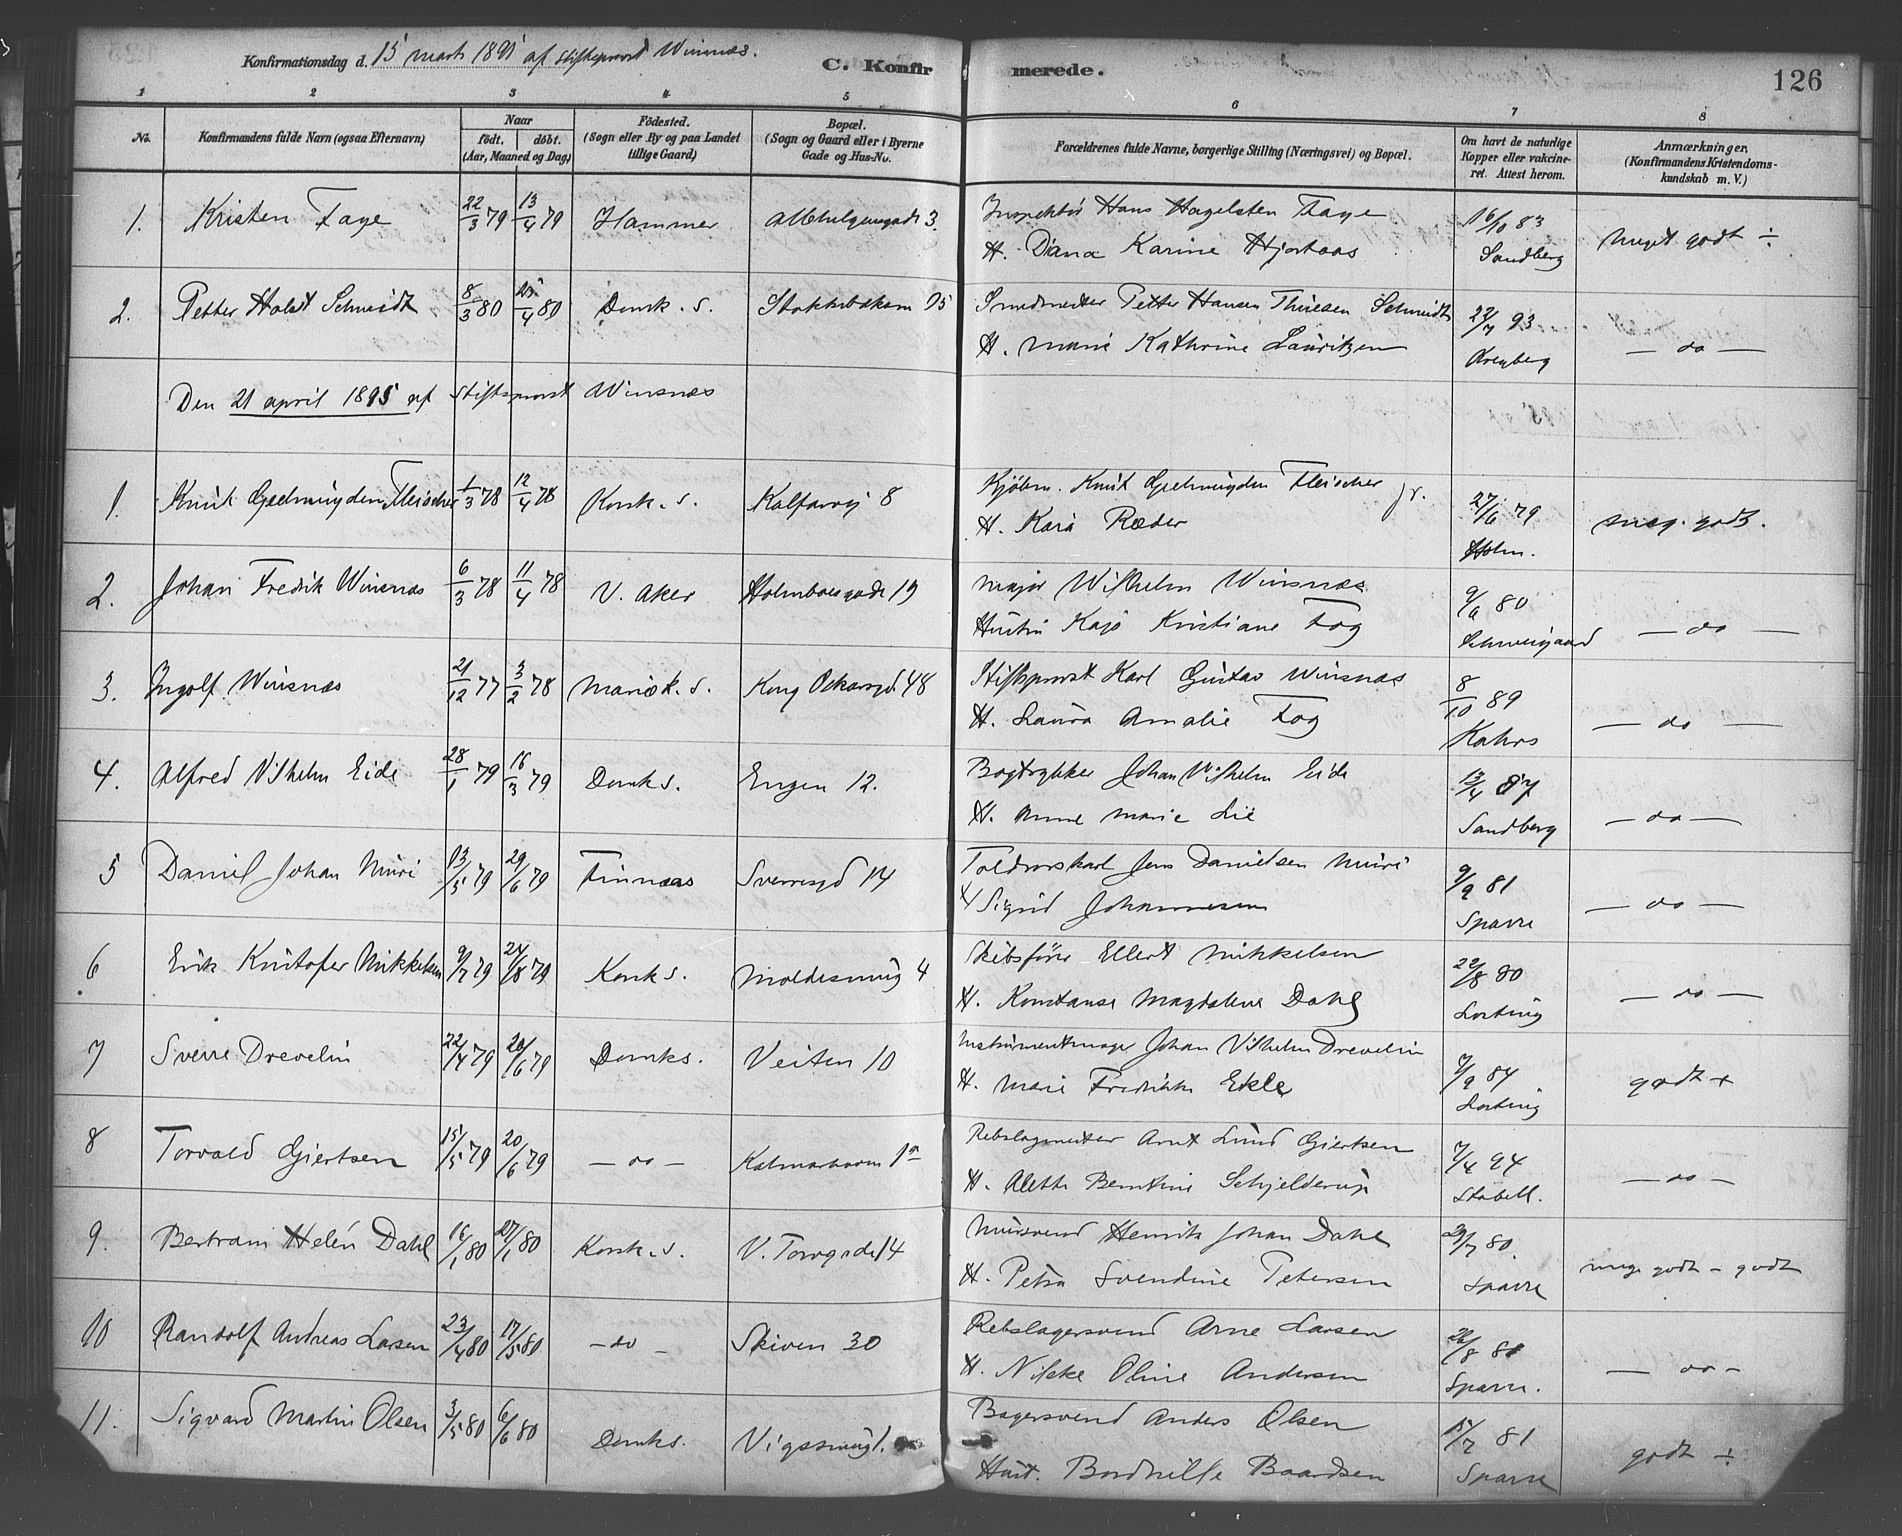 Konfirmationsdag d. 15 marts 1895 af stiftsprovst Winsnæs.
C. Konfirmerede.
126
1 2 3 4 5 6 7 8
No. Konfirmandens fulde Navn (ogsaa Efternavn) Naar født. døbt. (Aar, Maaned og Dag) Fødested. (Sogn eller By og paa Landet tillige Gaard) Bopæl. (Sogn og Gaard eller i Byerne Gade og Hus-No. Forældrenes fulde Navne, borgerlige Stilling (Næringsvei) og Bopæl. Om havt de naturlige Kopper eller vakcineret. Attest herom. Anmærkninger, (Konfirmandens Kristendomskundskab m. V.)
1. Kristen Faye 22/3 79 13/4 79 Hammer Allehelgensgade 3 Inspektør Hans Hagelsten Faye 16/10 83 meget godt ÷
H. Diana Karine Hjortaas Sandberg
2. Petter Holst Schmidt 8/3 80 25/4 80 Domk. s. 15 Smedmester Petter Hansen Thuesen Schmidt 22/7 93 — do —
H. Marie Kathrine Lauritzen
Den 21 april 1895 af Stiftsprovst Winsnæs
1. Knut Geelmuyden Fleischer 1/3 78 12/4 78 Korsk. s. Kalfarvej 8 Kjøbm. Knut Geelmuyden Fleischer jr. 27/6 79 meg. godt.
H. Kara Ræder Holm.
2. Johan Fredrik Winsnæs 6/3 78 11/4 78 V. Aker Holmboesgade 19 Major Wilhelm Winsnæs 9/9 80 — do —
Hustru Kaja Kristiane Fog Schweigaard
3. Ingolf Winsnæs 21/12 77 3/2 78 Mariæk. s. Kong Oskarsgd. 48 Stiftsprovst Karl Gustav Winsnæs 8/10 89 — do —
H. Laura Amalie Fog Kahrs
4. Alfred Vilhelm Eide 28/1 79 16/3 79 Domks. Engen 12. Bogtrykker Johan Vilhelm Eide 13/4 87 — do —
H. Anne Marie Lie Sandberg
5 Daniel Johan Muri 13/5 79 29/6 79 Finnaas Sverresgd 14 Toldvorskarl Jens Danielsen Muri 9/9 81 — do —
H Sigrid Johannesen Sparre
6 Erik Kristofer Mikkelsen 9/7 79 24/8 79 Korsks. Moldesmug 4 Skibsfører Ellert Mikkelsen 22/8 80 — do —
H. Konstanse Magdalene Dahl Lorting
7 Sverre Drevelin 22/4 79 20/6 79 Domks. Veiten 10 Instrumentmager Johan Vilhelm Drevelin 7/9 84 godt +
H. Marie Fredrikke Ekle Lorting
8 Torvald Giertsen 15/5 79 20/6 79 — do — Kalmarhaven 1a Rebslagermester Arnt Lund Giertsen 7/4 94 — do —
H. Alette Berntine Schjelderup Stabell.
9. Bertram Helén Dahl 16/1 80 27/1 80 Korsk. s. V. Torvgade 14 Mursvend Henrik Johan Dahl 29/7 80. meg. godt – godt
H. Petra Svendine Petersen Sparre
10 Randolf Andreas Larsen 23/4 80 17/5 80 — do — Skiven 30 Rebslagersvend Arne Larsen 26/8 81 — do —
H. Nilske Oline Andersen Sparre.
11. Sigvard Martin Olsen 3/5 80 6/6 80 Domks. Vigssmug 1. Bagersvend Anders Olsen 15/7 81 godt ÷
Hust. Bordville Baardsen Sparre